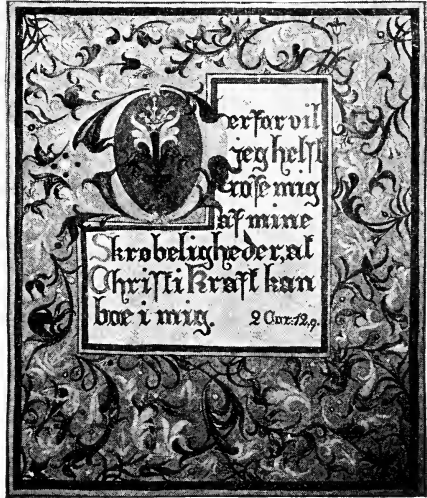 Derfor vil
jeg helst
rose mig
af mine
Skrobeligheder, at
Christi Kraft kan
boe i mig. 2 Cor: 12, 9.